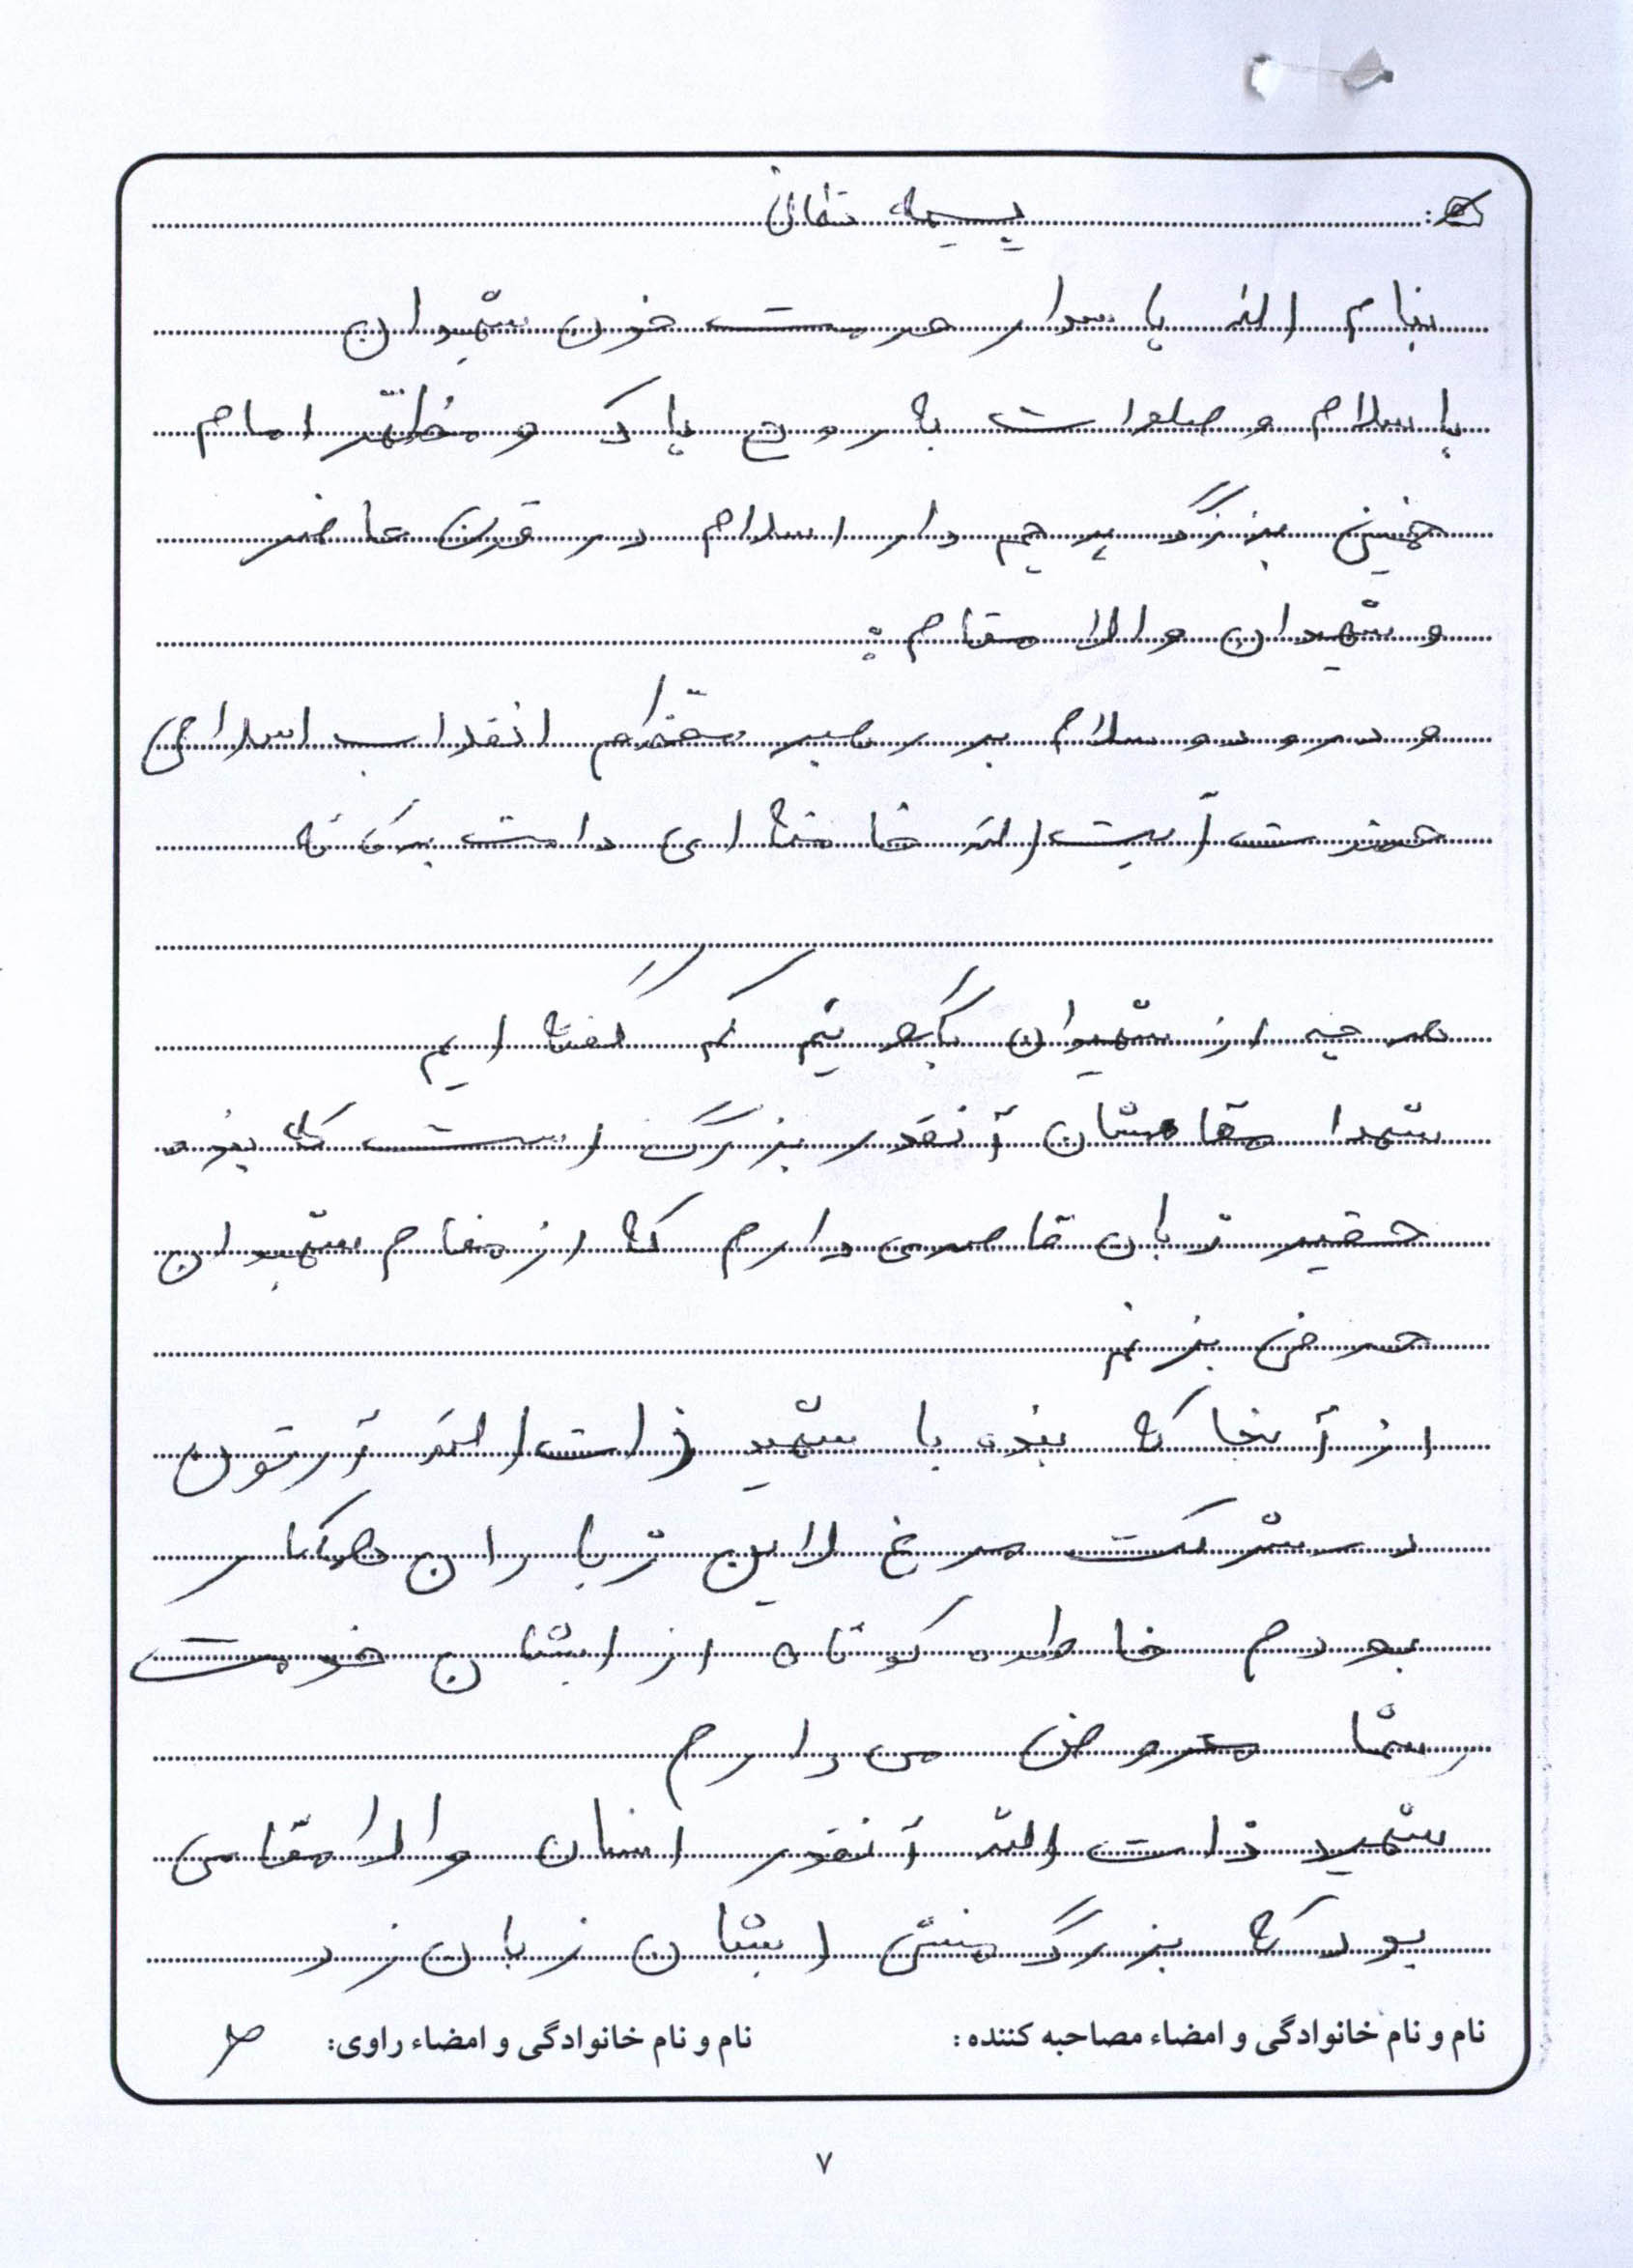 بسمه تعالی
بنام الله پاسدار حرمت خون شهیدان
با سلام و صلوات به روح پاک و مطهّر امام
خمینی بزرگ پرچم دار اسلام در قرن حاضر
و شهیدان والا مقام
و درود و سلام بر رهبر معظم انقلاب اسلامی
حضرت آیت الله خامنه ای دامت برکاته
هر چه از شهیدان بگوئیم کم گفته ایم
شهدا مقامشان آنقدر بزرگ است که بنده
حقیر زبان قاصری دارم که از مقام شهیدان
حرفی بزنم
از آنجا که بنده با شهید ذات الله آرتون
در شرکت مرغ لاین زیاران همکار
بودم خاطره کوتاه از ایشان خدمت
شما معروض می دارم
شهید ذات الله آنقدر انسان والا مقامی
بود که بزرگ منشی ایشان زبان زد
نام و نام خانوادگی و امضاء مصاحبه کننده: نام و نام خانوادگی و امضاء راوی:
۷